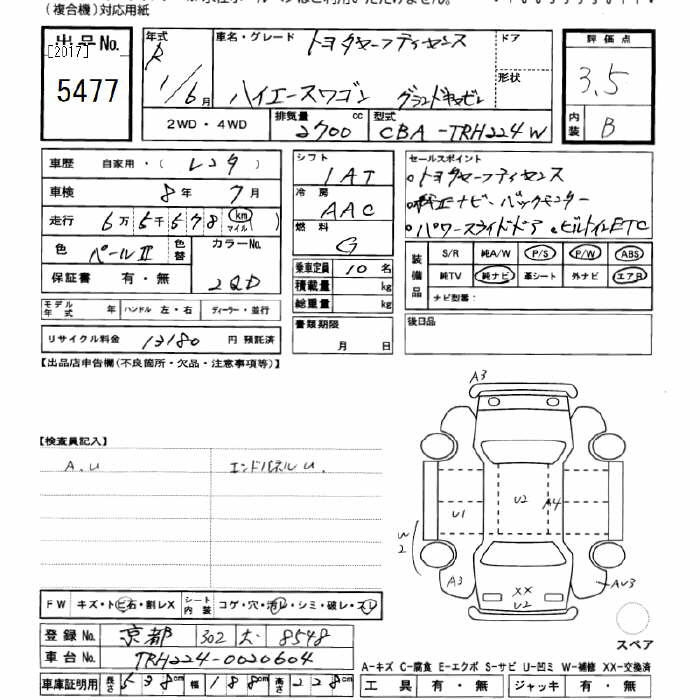 (複合機)対応用紙
出品No.
[2017]
5477
年式
R
1/6月
車名・グレード
トヨタセーフティセンス
ハイエースワゴン グランドキャビン
ドア
形状
評価点
3.5
内装
B
2WD・4WD
排気量
2700 cc
型式
CBA-TRH224W
車歴 自家用・(レンタ)
車検 8年 7月
走行 6万5千578 (km マイル)
色 パールⅡ
色替
カラーNo.
2QD
保証書 有・無
モデル年式 年 ハンドル 左・右 ディーラー・並行
リサイクル料金 13180 円 預託済
シフト
IAT
冷房
AAC
燃料
G
乗車定員 10名
積載量 kg
総重量 kg
書類期限
月 日
セールスポイント
・トヨタセーフティセンス
・純正ナビ・バックモニター
・パワースライドドア ・ビルトインETC
装備品
S/R 純A/W P/S P/W ABS
純TV 純ナビ 革シート 外ナビ エアB
ナビ型番:
後日品
【出品店申告欄(不良箇所・欠品・注意事項等)】
【検査員記入】
A.U
エンドパネルU.
A3
U1
U2
A4
W2
A3
XX
U2
AU3
スペア
FW キズ・トビ石・割レX
シート内装 コゲ・穴・汚レ・シミ・破レ・スレ
登録No. 京都 302 た 8548
車台No. TRH224-0020604
車庫証明用 長さ538cm 幅188cm 高さ228cm
A-キズ C-腐食 E-エクボ S-サビ U-凹ミ W-補修 XX-交換済
工具 有・無 ジャッキ 有・無